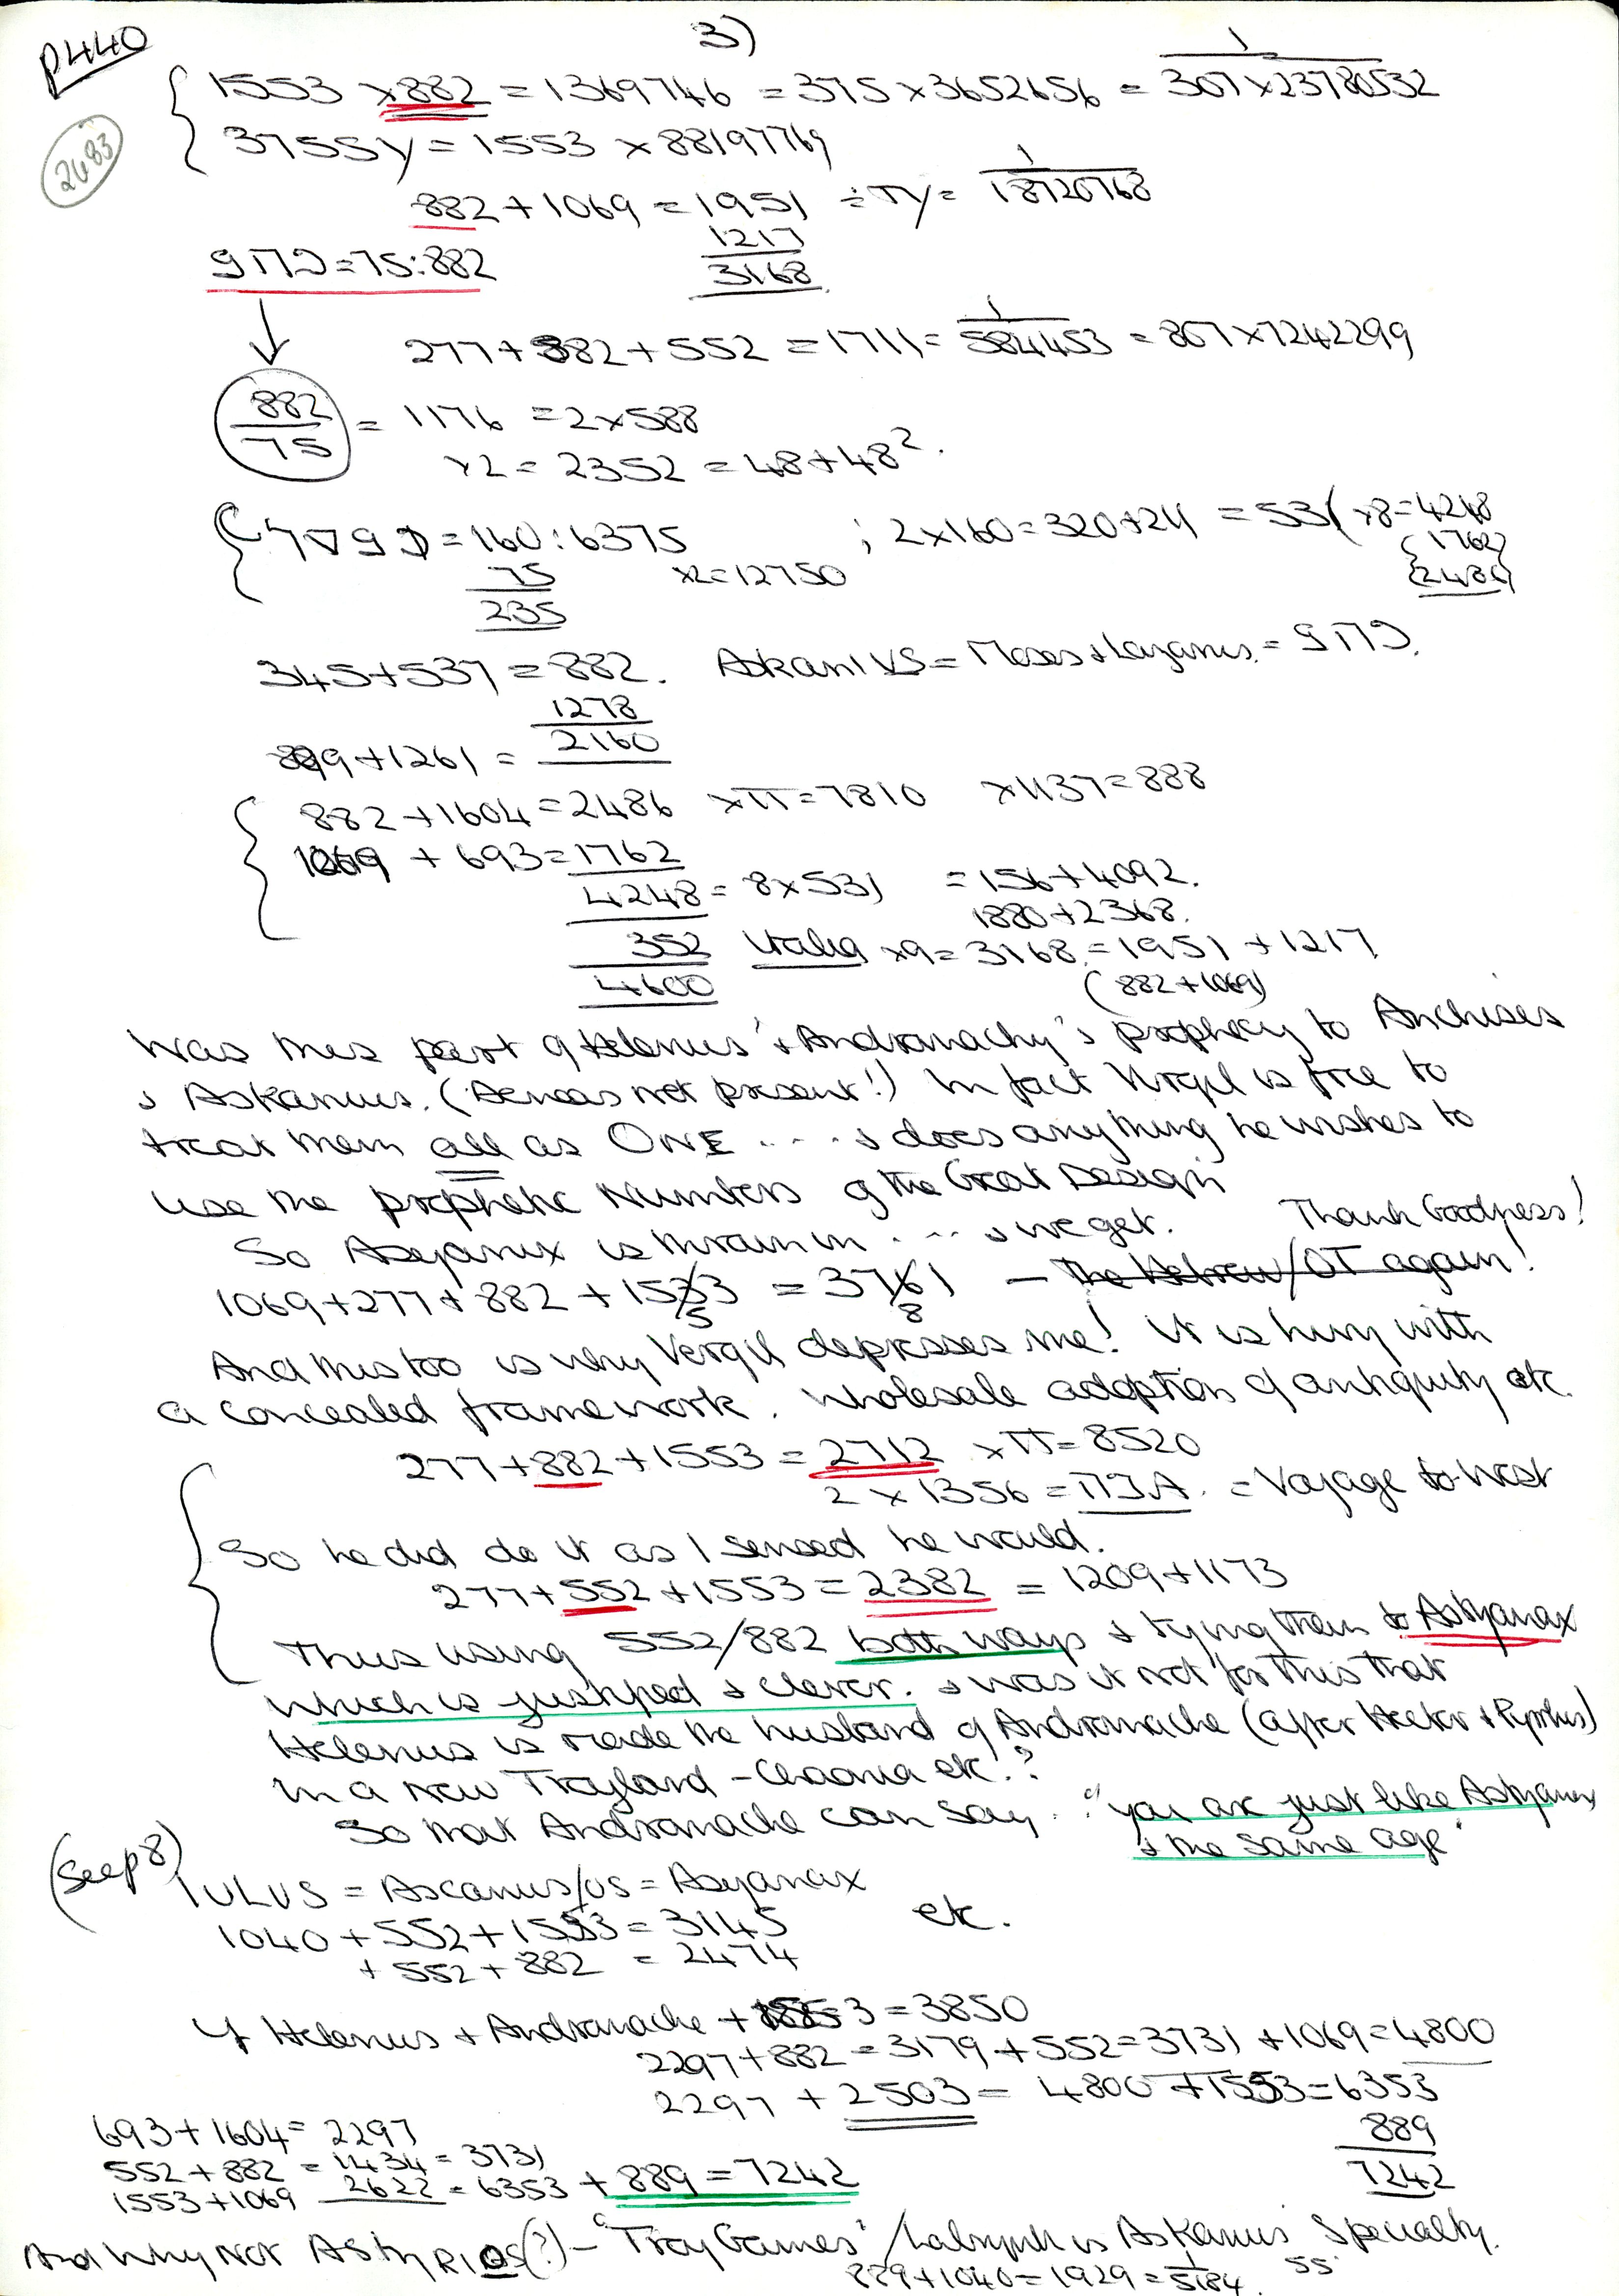 p440
3)
2683
1553 × 882 = 1369746 = 375 × 3652656 = 1/307×23780532
37554 = 1553 × 88197769
882 + 1069 = 1951 ÷ π/ = 1/18720768
1217
3168
= 75:882
277 + 882 + 552 = 1711 = 1/584453 = 807 × 7242299
882/75 = 1176 = 2×588
×2 = 2352 = 48+48².
= 160:6375 ; 2×160 = 320+211 = 531 ×8 = 4248
75 ×2=12750 1762
235 2486
345+537 = 882. Askanius = Moses + Lazarus =
1278
889+1261 = 2160
882+1604 = 2486 ×π = 7810 ×1137 = 888
1069 + 693 = 1762
4248 = 8×531 = 156+4092.
1880+2368.
352 Italia ×9 = 3168 = 1951 + 1217
4600 (882+1069)
Was this part of Helenus' & Andromachy's prophecy to Anchises
& Askanius. (Aeneas not present!) In fact Virgil is free to
treat them all as ONE .... & does anything he wishes to
use the prophetic numbers of the Great Design
So Asyanax is thrown in .... & we get. Thank Goodness!
1069+277+882+1553 = 3781 — The Hebrew/OT again!
And this too is why Vergil depresses me! It is hung with
a concealed framework. Wholesale adoption of antiquity etc.
277+882+1553 = 2712 ×π = 8520
2 × 1356 = = Voyage to West
So he did do it as I sensed he would.
277+552+1553 = 2382 = 1209+1173
Thus using 552/882 both ways & tying them to Astyanax
which is justified & clever. & was it not for this that
Helenus is made the husband of Andromache (after Hector & Pyrrhus)
in a new Troyland – Chaonia etc.?
So that Andromache can say. "you are just like Astyanax
& the same age"
(see p8)
IULUS = Ascanius/os = Asyanax
1040 + 552 + 1553 = 3145 etc.
+ 552 + 882 = 2474
If Helenus & Andromache + 1553 = 3850
2297+882 = 3179 + 552 = 3731 + 1069 = 4800
2297 + 2503 = 4800 + 1553 = 6353
889
7242
693+1604 = 2297
552+882 = 1434 = 3731
1553+1069 2622 = 6353 + 889 = 7242
And Why Not ASTYRIOS(?) – "Troy Games" / Labrynth is Askanius' Specialty.
889+1040 = 1929 = 1/5184. 55